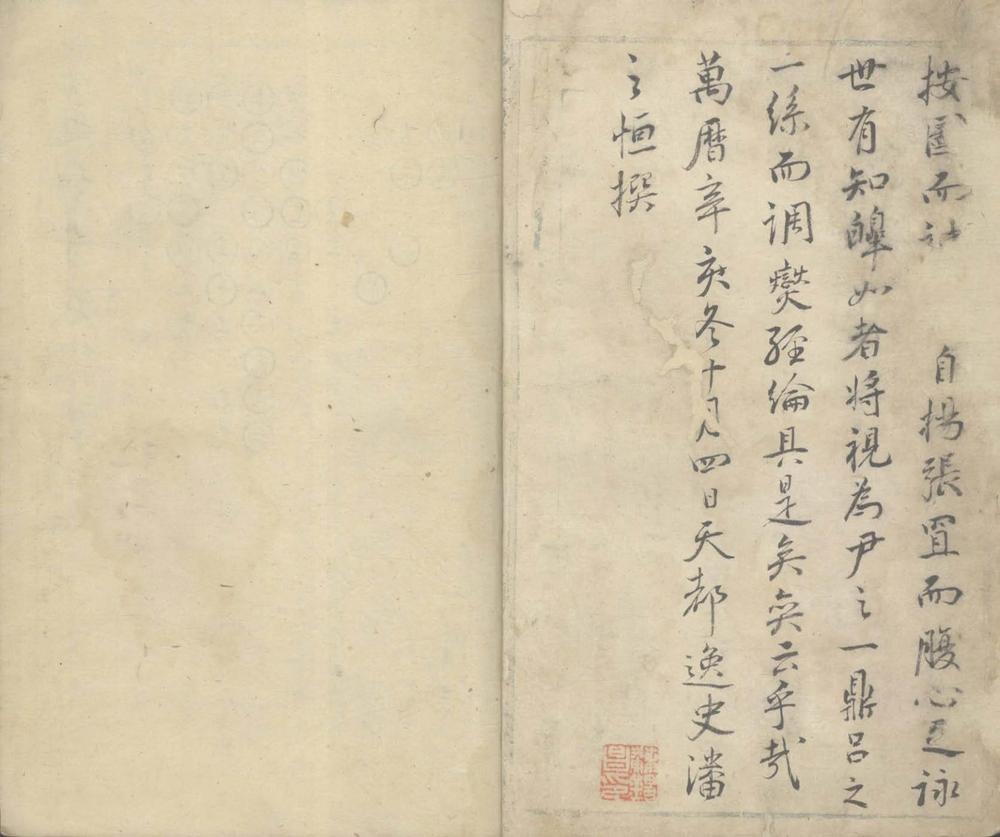 按圖而 自揚張罝而腹心足詠
世有知皞如者將視為尹之一鼎呂之
一絲而調燮經綸具是矣奕云乎哉
萬曆辛亥冬十月四日天都逸史潘
之恒撰